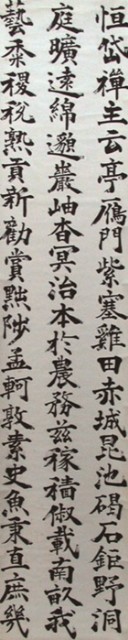 恒岱禪主云亭雁門紫塞雞田赤城昆池碣石鉅野洞
庭曠遠綿邈巖岫杳冥治本於農務茲稼穡俶載南畝我
藝黍稷稅熟貢新勸賞黜陟孟軻敦素史魚秉直庶幾